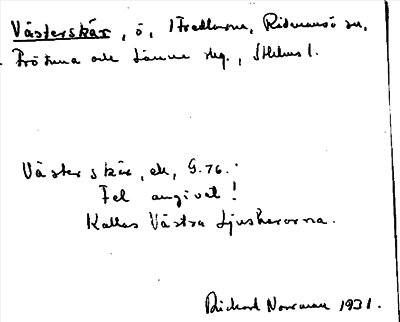 Västerskär, ö, i Fredlarna, Ridmansö sn,
Frötuna och Länna skg., Sthlms l.
Västerskär, ek, G. 76.:
Fel angivet!
Kallas Västra Ljusskärorna.
Rickard Norrman 1931.